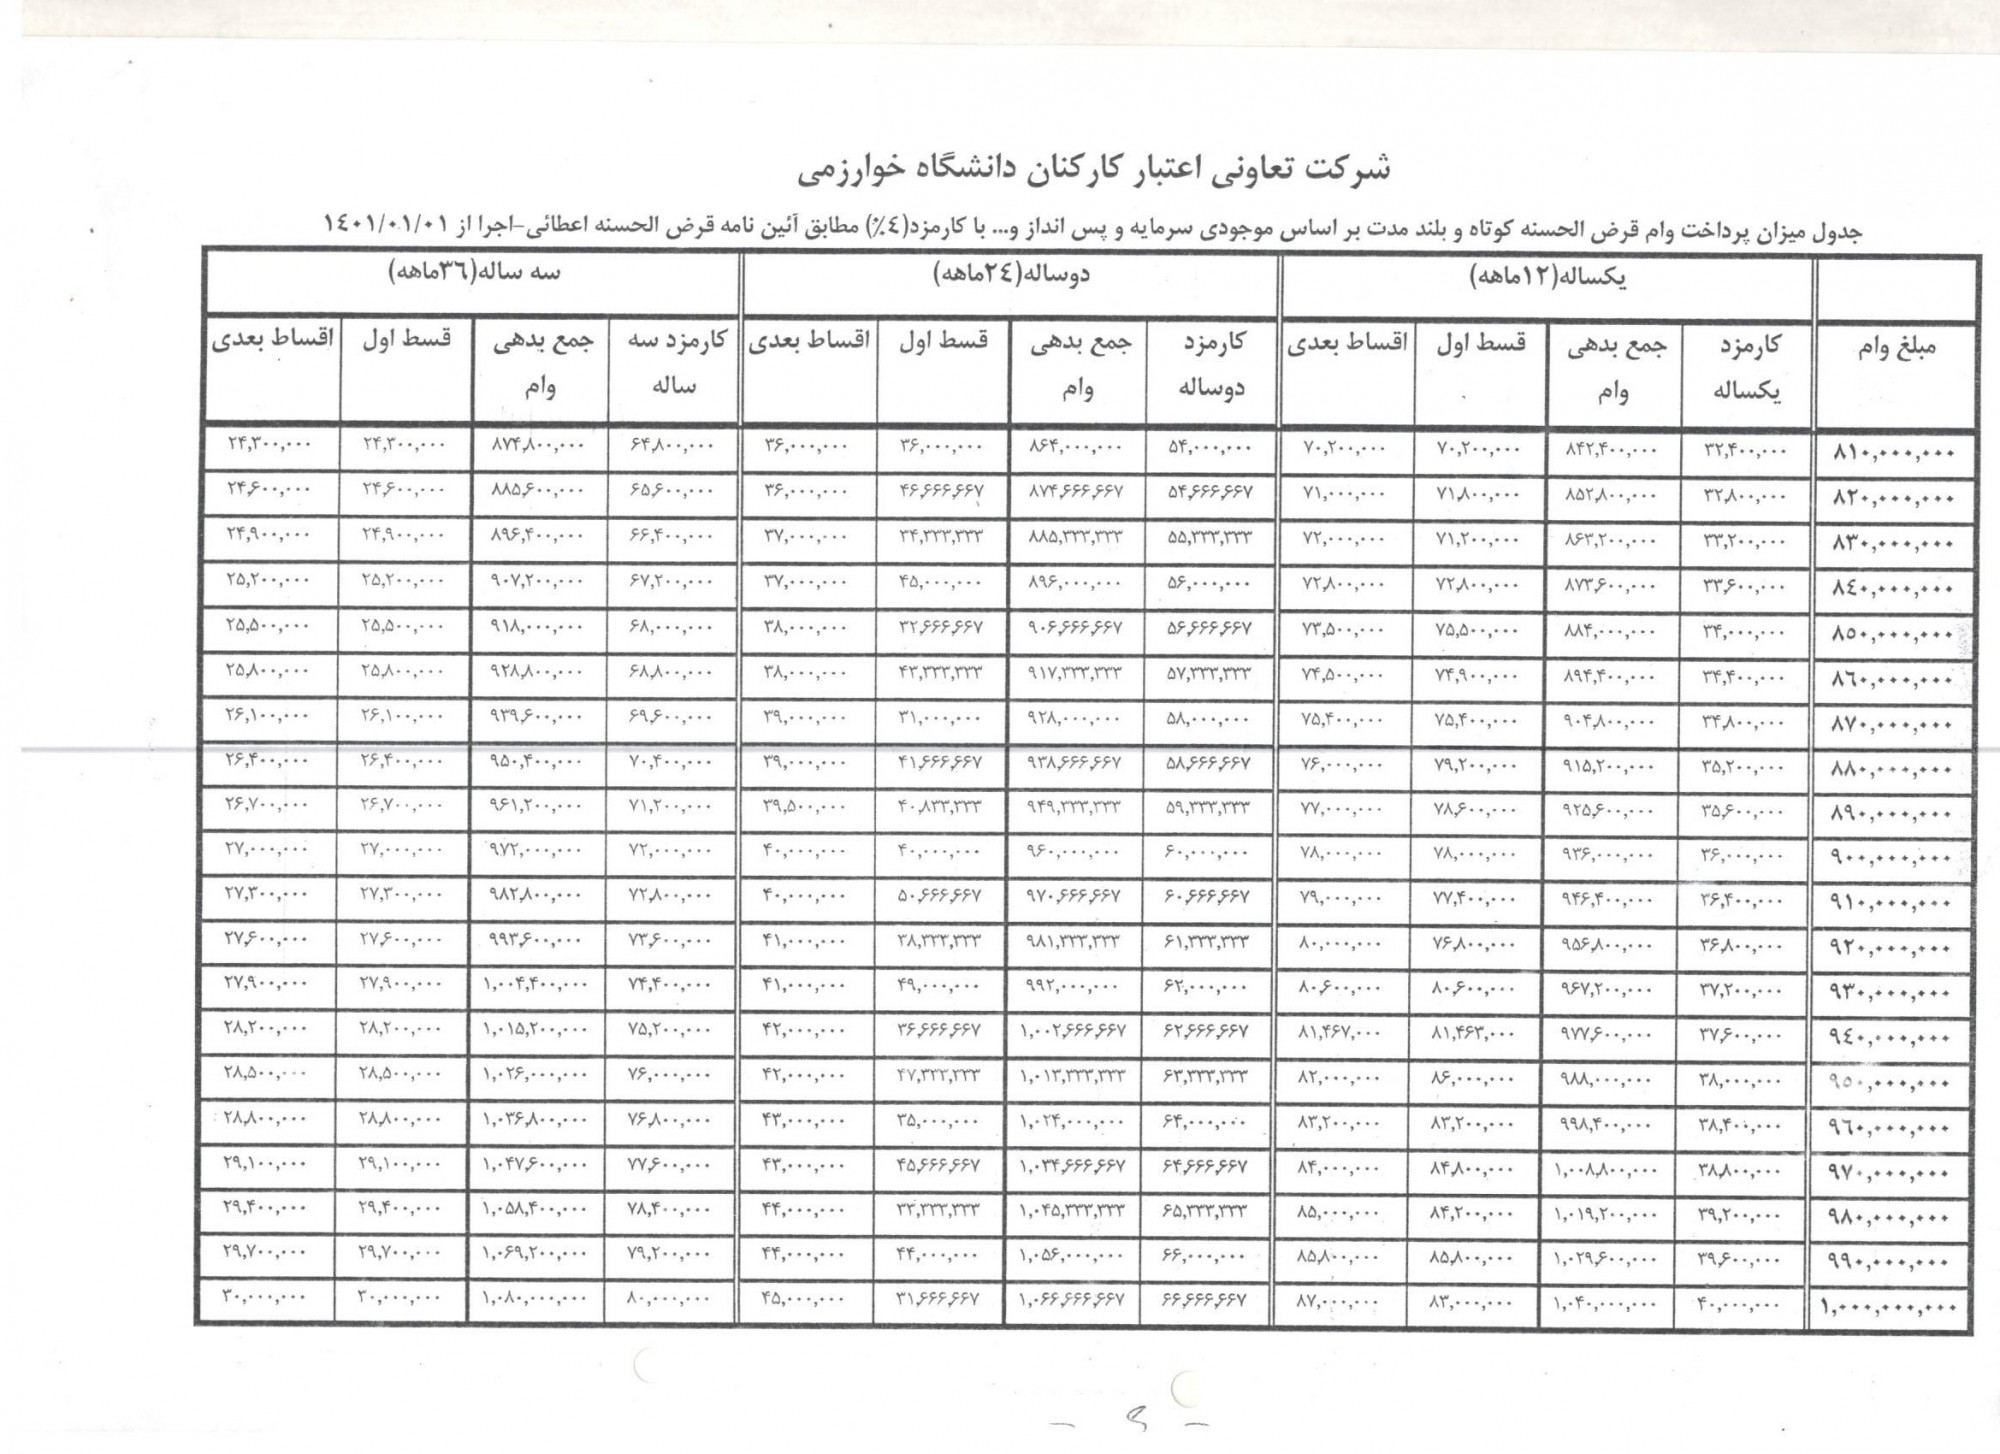 شرکت تعاونی اعتبار کارکنان دانشگاه خوارزمی
جدول میزان پرداخت وام قرض الحسنه کوتاه و بلند مدت بر اساس موجودی سرمایه و پس انداز و... با کارمزد(٤٪) مطابق آئین نامه قرض الحسنه اعطائی-اجرا از ١٤٠١/٠١/٠١
یکساله(١٢ماهه) دوساله(٢٤ماهه) سه ساله(٣٦ماهه)
مبلغ وام کارمزد یکساله جمع بدهی وام قسط اول اقساط بعدی کارمزد دوساله جمع بدهی وام قسط اول اقساط بعدی کارمزد سه ساله جمع بدهی وام قسط اول اقساط بعدی
٨١٠,٠٠٠,٠٠٠ ۳۲,۴۰۰,۰۰۰ ۸۴۲,۴۰۰,۰۰۰ ۷۰,۲۰۰,۰۰۰ ۷۰,۲۰۰,۰۰۰ ۵۴,۰۰۰,۰۰۰ ۸۶۴,۰۰۰,۰۰۰ ۳۶,۰۰۰,۰۰۰ ۳۶,۰۰۰,۰۰۰ ۶۴,۸۰۰,۰۰۰ ۸۷۴,۸۰۰,۰۰۰ ۲۴,۳۰۰,۰۰۰ ۲۴,۳۰۰,۰۰۰
٨٢٠,٠٠٠,٠٠٠ ۳۲,۸۰۰,۰۰۰ ۸۵۲,۸۰۰,۰۰۰ ۷۱,۸۰۰,۰۰۰ ۷۱,۰۰۰,۰۰۰ ۵۴,۶۶۶,۶۶۷ ۸۷۴,۶۶۶,۶۶۷ ۴۶,۶۶۶,۶۶۷ ۳۶,۰۰۰,۰۰۰ ۶۵,۶۰۰,۰۰۰ ۸۸۵,۶۰۰,۰۰۰ ۲۴,۶۰۰,۰۰۰ ۲۴,۶۰۰,۰۰۰
٨٣٠,٠٠٠,٠٠٠ ۳۳,۲۰۰,۰۰۰ ۸۶۳,۲۰۰,۰۰۰ ۷۱,۲۰۰,۰۰۰ ۷۲,۰۰۰,۰۰۰ ۵۵,۳۳۳,۳۳۳ ۸۸۵,۳۳۳,۳۳۳ ۳۴,۳۳۳,۳۳۳ ۳۷,۰۰۰,۰۰۰ ۶۶,۴۰۰,۰۰۰ ۸۹۶,۴۰۰,۰۰۰ ۲۴,۹۰۰,۰۰۰ ۲۴,۹۰۰,۰۰۰
٨٤٠,٠٠٠,٠٠٠ ۳۳,۶۰۰,۰۰۰ ۸۷۳,۶۰۰,۰۰۰ ۷۲,۸۰۰,۰۰۰ ۷۲,۸۰۰,۰۰۰ ۵۶,۰۰۰,۰۰۰ ۸۹۶,۰۰۰,۰۰۰ ۴۵,۰۰۰,۰۰۰ ۳۷,۰۰۰,۰۰۰ ۶۷,۲۰۰,۰۰۰ ۹۰۷,۲۰۰,۰۰۰ ۲۵,۲۰۰,۰۰۰ ۲۵,۲۰۰,۰۰۰
٨٥٠,٠٠٠,٠٠٠ ۳۴,۰۰۰,۰۰۰ ۸۸۴,۰۰۰,۰۰۰ ۷۵,۵۰۰,۰۰۰ ۷۳,۵۰۰,۰۰۰ ۵۶,۶۶۶,۶۶۷ ۹۰۶,۶۶۶,۶۶۷ ۳۲,۶۶۶,۶۶۷ ۳۸,۰۰۰,۰۰۰ ۶۸,۰۰۰,۰۰۰ ۹۱۸,۰۰۰,۰۰۰ ۲۵,۵۰۰,۰۰۰ ۲۵,۵۰۰,۰۰۰
٨٦٠,٠٠٠,٠٠٠ ۳۴,۴۰۰,۰۰۰ ۸۹۴,۴۰۰,۰۰۰ ۷۴,۹۰۰,۰۰۰ ۷۴,۵۰۰,۰۰۰ ۵۷,۳۳۳,۳۳۳ ۹۱۷,۳۳۳,۳۳۳ ۴۳,۳۳۳,۳۳۳ ۳۸,۰۰۰,۰۰۰ ۶۸,۸۰۰,۰۰۰ ۹۲۸,۸۰۰,۰۰۰ ۲۵,۸۰۰,۰۰۰ ۲۵,۸۰۰,۰۰۰
٨٧٠,٠٠٠,٠٠٠ ۳۴,۸۰۰,۰۰۰ ۹۰۴,۸۰۰,۰۰۰ ۷۵,۴۰۰,۰۰۰ ۷۵,۴۰۰,۰۰۰ ۵۸,۰۰۰,۰۰۰ ۹۲۸,۰۰۰,۰۰۰ ۳۱,۰۰۰,۰۰۰ ۳۹,۰۰۰,۰۰۰ ۶۹,۶۰۰,۰۰۰ ۹۳۹,۶۰۰,۰۰۰ ۲۶,۱۰۰,۰۰۰ ۲۶,۱۰۰,۰۰۰
٨٨٠,٠٠٠,٠٠٠ ۳۵,۲۰۰,۰۰۰ ۹۱۵,۲۰۰,۰۰۰ ۷۹,۲۰۰,۰۰۰ ۷۶,۰۰۰,۰۰۰ ۵۸,۶۶۶,۶۶۷ ۹۳۸,۶۶۶,۶۶۷ ۴۱,۶۶۶,۶۶۷ ۳۹,۰۰۰,۰۰۰ ۷۰,۴۰۰,۰۰۰ ۹۵۰,۴۰۰,۰۰۰ ۲۶,۴۰۰,۰۰۰ ۲۶,۴۰۰,۰۰۰
٨٩٠,٠٠٠,٠٠٠ ۳۵,۶۰۰,۰۰۰ ۹۲۵,۶۰۰,۰۰۰ ۷۸,۶۰۰,۰۰۰ ۷۷,۰۰۰,۰۰۰ ۵۹,۳۳۳,۳۳۳ ۹۴۹,۳۳۳,۳۳۳ ۴۰,۸۳۳,۳۳۳ ۳۹,۵۰۰,۰۰۰ ۷۱,۲۰۰,۰۰۰ ۹۶۱,۲۰۰,۰۰۰ ۲۶,۷۰۰,۰۰۰ ۲۶,۷۰۰,۰۰۰
٩٠٠,٠٠٠,٠٠٠ ۳۶,۰۰۰,۰۰۰ ۹۳۶,۰۰۰,۰۰۰ ۷۸,۰۰۰,۰۰۰ ۷۸,۰۰۰,۰۰۰ ۶۰,۰۰۰,۰۰۰ ۹۶۰,۰۰۰,۰۰۰ ۴۰,۰۰۰,۰۰۰ ۴۰,۰۰۰,۰۰۰ ۷۲,۰۰۰,۰۰۰ ۹۷۲,۰۰۰,۰۰۰ ۲۷,۰۰۰,۰۰۰ ۲۷,۰۰۰,۰۰۰
٩١٠,٠٠٠,٠٠٠ ۳۶,۴۰۰,۰۰۰ ۹۴۶,۴۰۰,۰۰۰ ۷۷,۴۰۰,۰۰۰ ۷۹,۰۰۰,۰۰۰ ۶۰,۶۶۶,۶۶۷ ۹۷۰,۶۶۶,۶۶۷ ۵۰,۶۶۶,۶۶۷ ۴۰,۰۰۰,۰۰۰ ۷۲,۸۰۰,۰۰۰ ۹۸۲,۸۰۰,۰۰۰ ۲۷,۳۰۰,۰۰۰ ۲۷,۳۰۰,۰۰۰
٩٢٠,٠٠٠,٠٠٠ ۳۶,۸۰۰,۰۰۰ ۹۵۶,۸۰۰,۰۰۰ ۷۶,۸۰۰,۰۰۰ ۸۰,۰۰۰,۰۰۰ ۶۱,۳۳۳,۳۳۳ ۹۸۱,۳۳۳,۳۳۳ ۳۸,۳۳۳,۳۳۳ ۴۱,۰۰۰,۰۰۰ ۷۳,۶۰۰,۰۰۰ ۹۹۳,۶۰۰,۰۰۰ ۲۷,۶۰۰,۰۰۰ ۲۷,۶۰۰,۰۰۰
٩٣٠,٠٠٠,٠٠٠ ۳۷,۲۰۰,۰۰۰ ۹۶۷,۲۰۰,۰۰۰ ۸۰,۶۰۰,۰۰۰ ۸۰,۶۰۰,۰۰۰ ۶۲,۰۰۰,۰۰۰ ۹۹۲,۰۰۰,۰۰۰ ۴۹,۰۰۰,۰۰۰ ۴۱,۰۰۰,۰۰۰ ۷۴,۴۰۰,۰۰۰ ۱,۰۰۴,۴۰۰,۰۰۰ ۲۷,۹۰۰,۰۰۰ ۲۷,۹۰۰,۰۰۰
٩٤٠,٠٠٠,٠٠٠ ۳۷,۶۰۰,۰۰۰ ۹۷۷,۶۰۰,۰۰۰ ۸۱,۴۶۳,۰۰۰ ۸۱,۴۶۷,۰۰۰ ۶۲,۶۶۶,۶۶۷ ۱,۰۰۲,۶۶۶,۶۶۷ ۳۶,۶۶۶,۶۶۷ ۴۲,۰۰۰,۰۰۰ ۷۵,۲۰۰,۰۰۰ ۱,۰۱۵,۲۰۰,۰۰۰ ۲۸,۲۰۰,۰۰۰ ۲۸,۲۰۰,۰۰۰
٩٥٠,٠٠٠,٠٠٠ ۳۸,۰۰۰,۰۰۰ ۹۸۸,۰۰۰,۰۰۰ ۸۶,۰۰۰,۰۰۰ ۸۲,۰۰۰,۰۰۰ ۶۳,۳۳۳,۳۳۳ ۱,۰۱۳,۳۳۳,۳۳۳ ۴۷,۳۳۳,۳۳۳ ۴۲,۰۰۰,۰۰۰ ۷۶,۰۰۰,۰۰۰ ۱,۰۲۶,۰۰۰,۰۰۰ ۲۸,۵۰۰,۰۰۰ ۲۸,۵۰۰,۰۰۰
٩٦٠,٠٠٠,٠٠٠ ۳۸,۴۰۰,۰۰۰ ۹۹۸,۴۰۰,۰۰۰ ۸۳,۲۰۰,۰۰۰ ۸۳,۲۰۰,۰۰۰ ۶۴,۰۰۰,۰۰۰ ۱,۰۲۴,۰۰۰,۰۰۰ ۳۵,۰۰۰,۰۰۰ ۴۳,۰۰۰,۰۰۰ ۷۶,۸۰۰,۰۰۰ ۱,۰۳۶,۸۰۰,۰۰۰ ۲۸,۸۰۰,۰۰۰ ۲۸,۸۰۰,۰۰۰
٩٧٠,٠٠٠,٠٠٠ ۳۸,۸۰۰,۰۰۰ ۱,۰۰۸,۸۰۰,۰۰۰ ۸۴,۸۰۰,۰۰۰ ۸۴,۰۰۰,۰۰۰ ۶۴,۶۶۶,۶۶۷ ۱,۰۳۴,۶۶۶,۶۶۷ ۴۵,۶۶۶,۶۶۷ ۴۳,۰۰۰,۰۰۰ ۷۷,۶۰۰,۰۰۰ ۱,۰۴۷,۶۰۰,۰۰۰ ۲۹,۱۰۰,۰۰۰ ۲۹,۱۰۰,۰۰۰
٩٨٠,٠٠٠,٠٠٠ ۳۹,۲۰۰,۰۰۰ ۱,۰۱۹,۲۰۰,۰۰۰ ۸۴,۲۰۰,۰۰۰ ۸۵,۰۰۰,۰۰۰ ۶۵,۳۳۳,۳۳۳ ۱,۰۴۵,۳۳۳,۳۳۳ ۳۳,۳۳۳,۳۳۳ ۴۴,۰۰۰,۰۰۰ ۷۸,۴۰۰,۰۰۰ ۱,۰۵۸,۴۰۰,۰۰۰ ۲۹,۴۰۰,۰۰۰ ۲۹,۴۰۰,۰۰۰
٩٩٠,٠٠٠,٠٠٠ ۳۹,۶۰۰,۰۰۰ ۱,۰۲۹,۶۰۰,۰۰۰ ۸۵,۸۰۰,۰۰۰ ۸۵,۸۰۰,۰۰۰ ۶۶,۰۰۰,۰۰۰ ۱,۰۵۶,۰۰۰,۰۰۰ ۴۴,۰۰۰,۰۰۰ ۴۴,۰۰۰,۰۰۰ ۷۹,۲۰۰,۰۰۰ ۱,۰۶۹,۲۰۰,۰۰۰ ۲۹,۷۰۰,۰۰۰ ۲۹,۷۰۰,۰۰۰
١,٠٠٠,٠٠٠,٠٠٠ ۴۰,۰۰۰,۰۰۰ ۱,۰۴۰,۰۰۰,۰۰۰ ۸۳,۰۰۰,۰۰۰ ۸۷,۰۰۰,۰۰۰ ۶۶,۶۶۶,۶۶۷ ۱,۰۶۶,۶۶۶,۶۶۷ ۳۱,۶۶۶,۶۶۷ ۴۵,۰۰۰,۰۰۰ ۸۰,۰۰۰,۰۰۰ ۱,۰۸۰,۰۰۰,۰۰۰ ۳۰,۰۰۰,۰۰۰ ۳۰,۰۰۰,۰۰۰